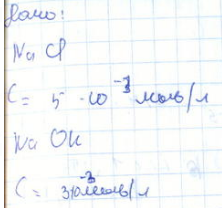 Дано:
NaCl
C = 5 · 10⁻³ моль/л
NaOH
C = 3·10⁻³ моль/л